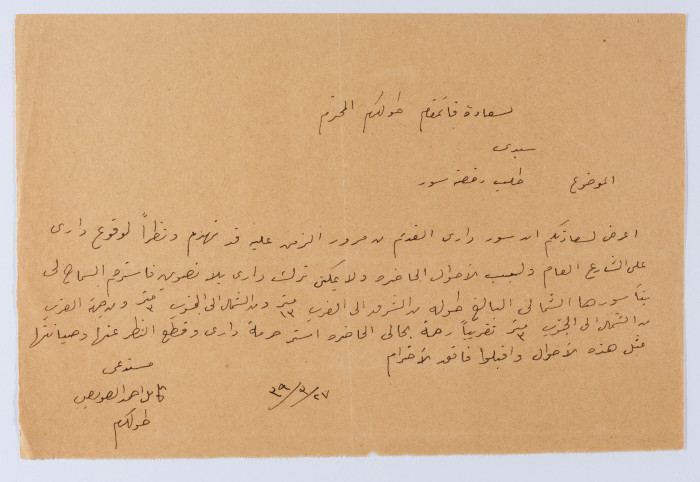 لسعادة قائمقام طولكرم المحترم
سيدي
الموضوع طلب رخصة سور
اعرض لسعادتكم ان سور داري القديم من مرور الزمن عليه قد تهدم ونظراً لوقوع داري
على الشارع العام ولسبب الأحوال الحاضره ولا يمكن ترك داري بلا تصوين فاسترحم السماح لي
ببناء سورها الشمالي البالغ طوله من الشرق الى الغرب ١٣ متر ومن الشمال الى الجنوب ٣ متر ومن جهة الغرب
من الشمال الى الجنوب ٣ متر تقريباً رحمة بحالي الحاضره استر حرمة داري وقطع النظر عنها وصيانتها
مثل هذه الأحوال واقبلوا فائق الأحترام
مستدعي
كامل احمد
طولكرم
٢٧/٣/٣٩